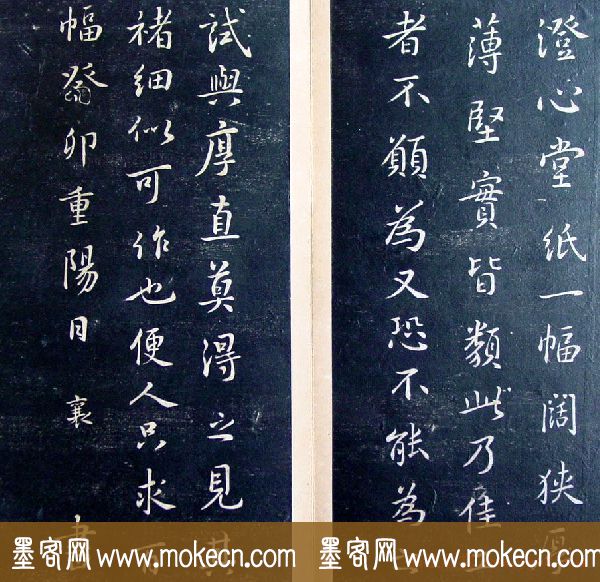 澄心堂紙一幅闊狹厚
薄堅實皆類此乃佳
者不願為又恐不能為之
試與厚直莫得之見其
褚細似可作也便人只求百
幅癸卯重陽日襄書
墨客网 www.mokecn.com
墨客网 www.mokecn.com